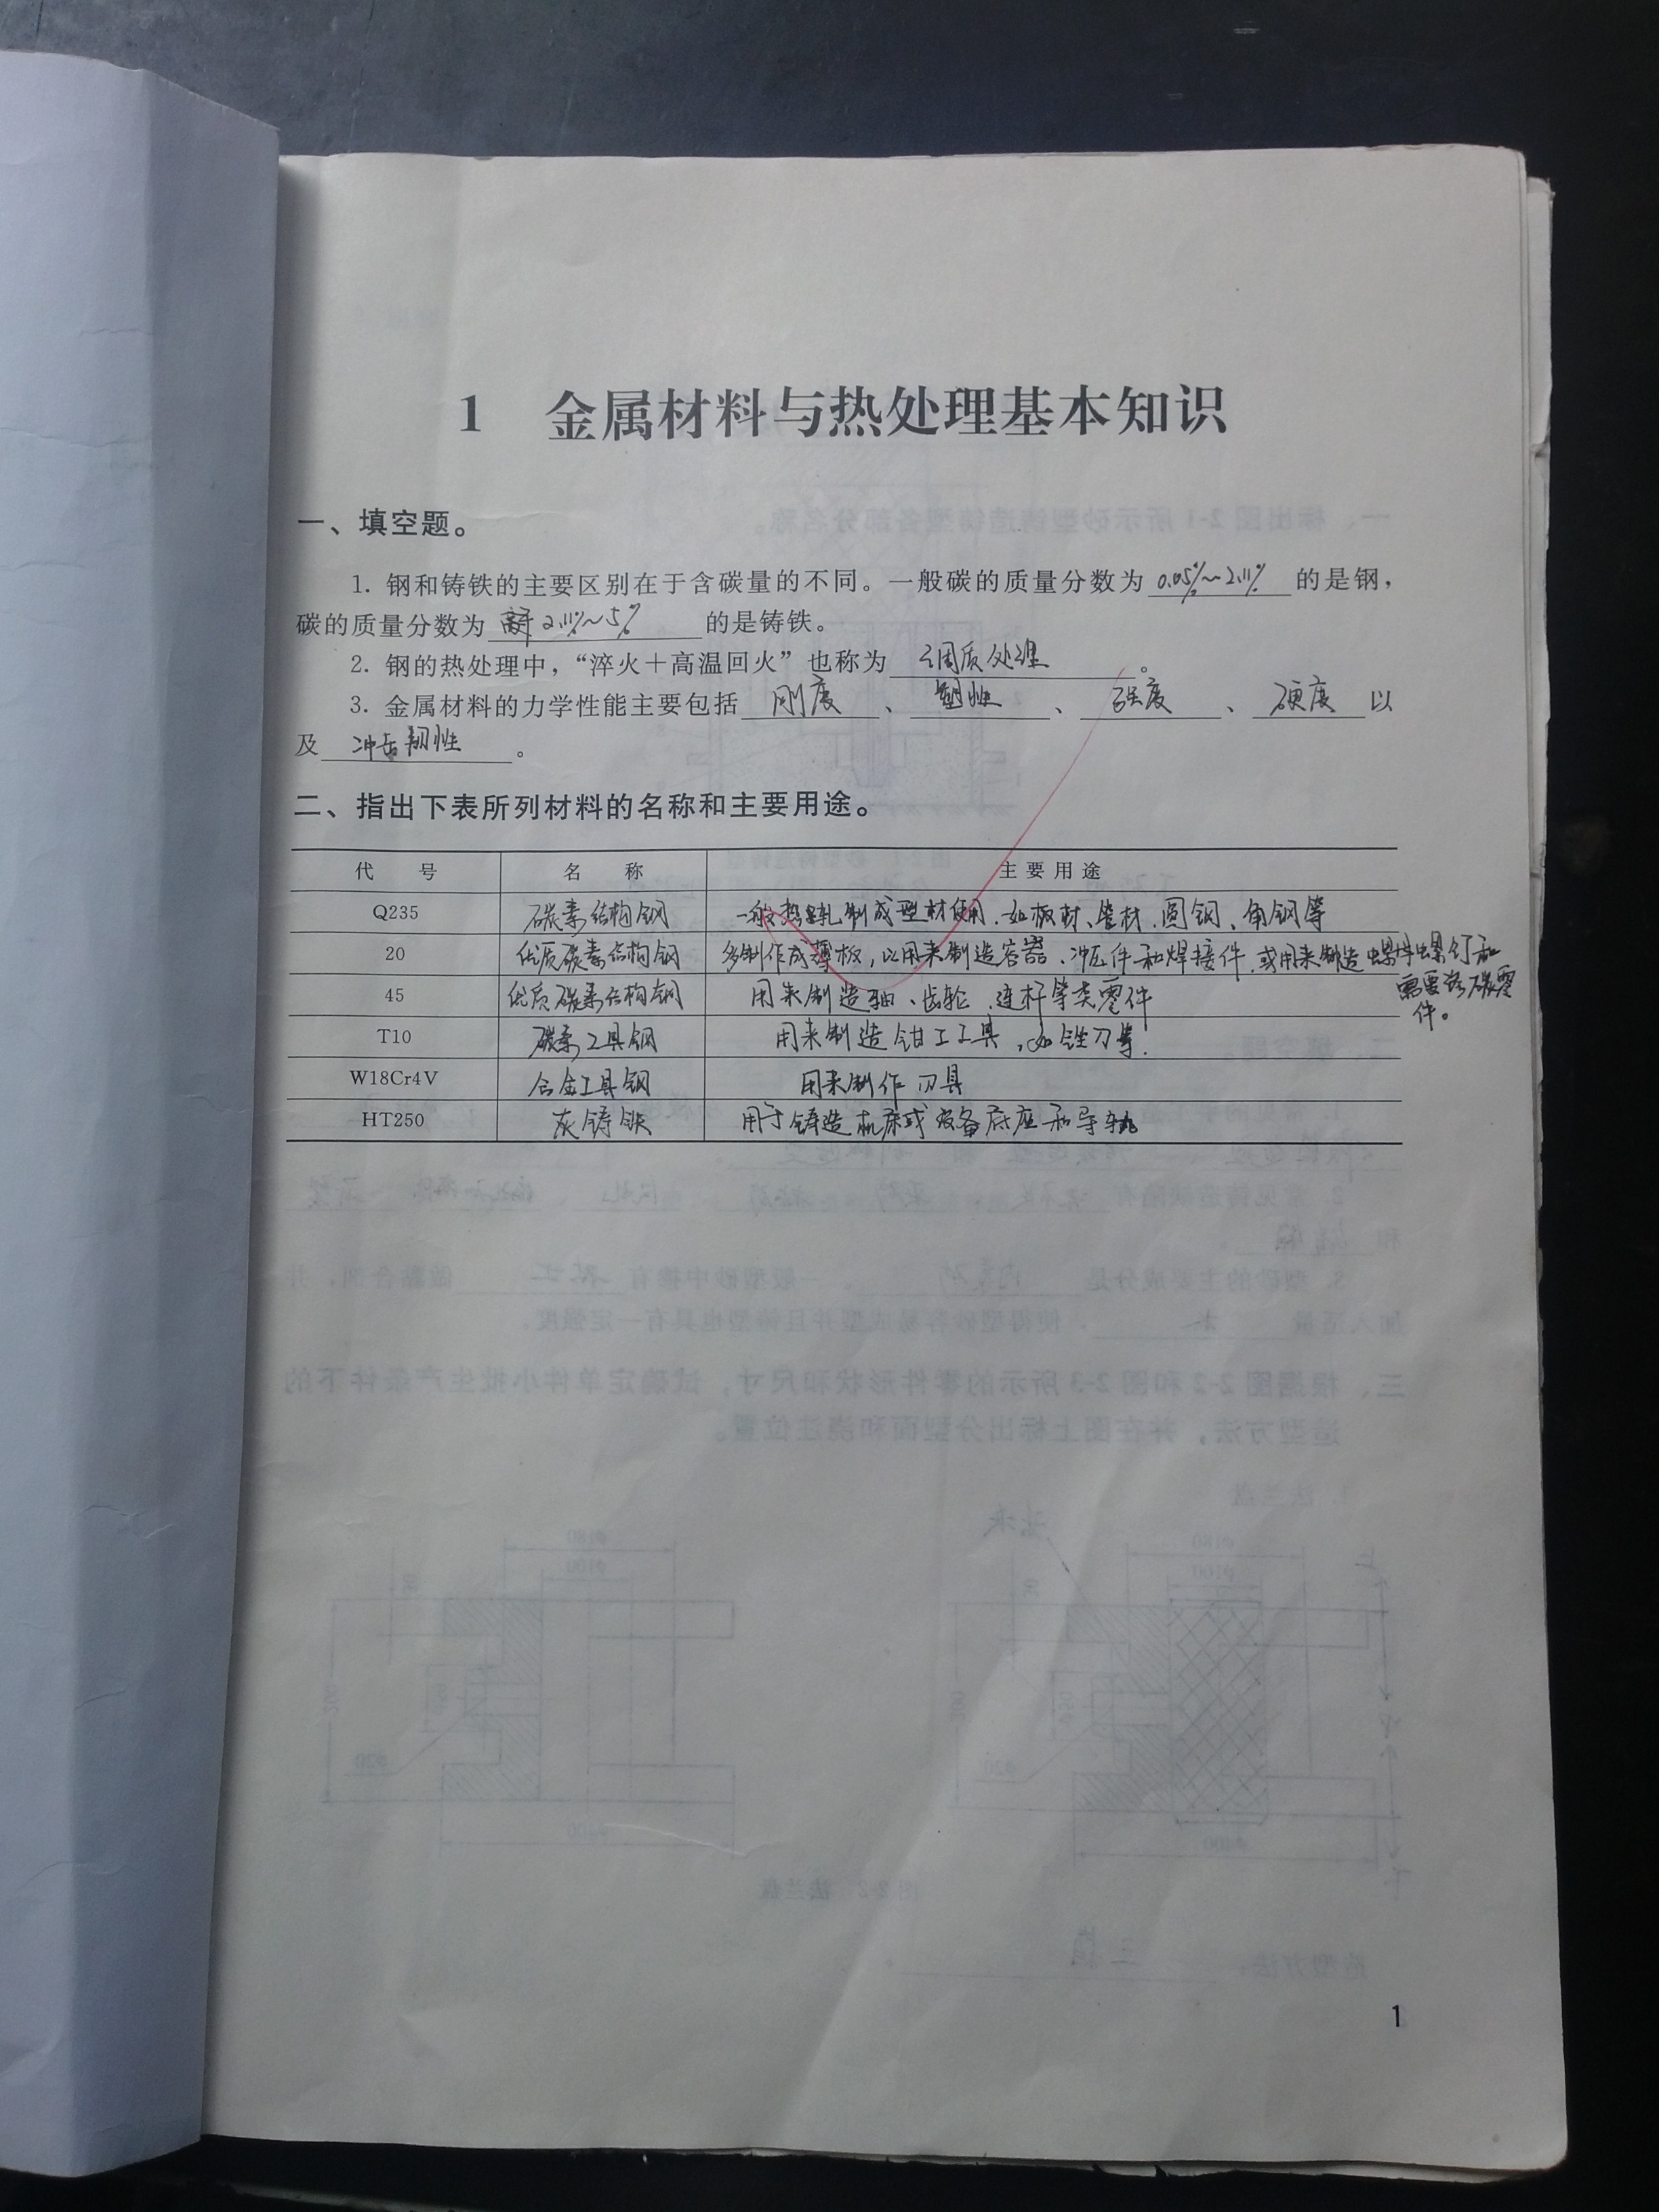 1 金属材料与热处理基本知识
一、填空题。
1. 钢和铸铁的主要区别在于含碳量的不同。一般碳的质量分数为 0.05%~2.11% 的是钢，
碳的质量分数为 2.11%~5% 的是铸铁。
2. 钢的热处理中，“淬火＋高温回火”也称为 调质处理 。
3. 金属材料的力学性能主要包括 刚度 、 塑性 、 强度 、 硬度 以
及 冲击韧性 。
二、指出下表所列材料的名称和主要用途。
代 号 名 称 主要用途
Q235 碳素结构钢 一般热轧制成型材使用.如板材、管材.圆钢、角钢等
20 优质碳素结构钢 多制作成薄板，以用来制造容器、冲压件和焊接件.或用来制造螺母螺钉和
需要渗碳零
件。
45 优质碳素结构钢 用来制造轴、齿轮、连杆等类零件
T10 碳素工具钢 用来制造钳工工具，如锉刀等.
W18Cr4V 合金工具钢 用来制作刃具
HT250 灰铸铁 用于铸造机床或设备底座和导轨
1